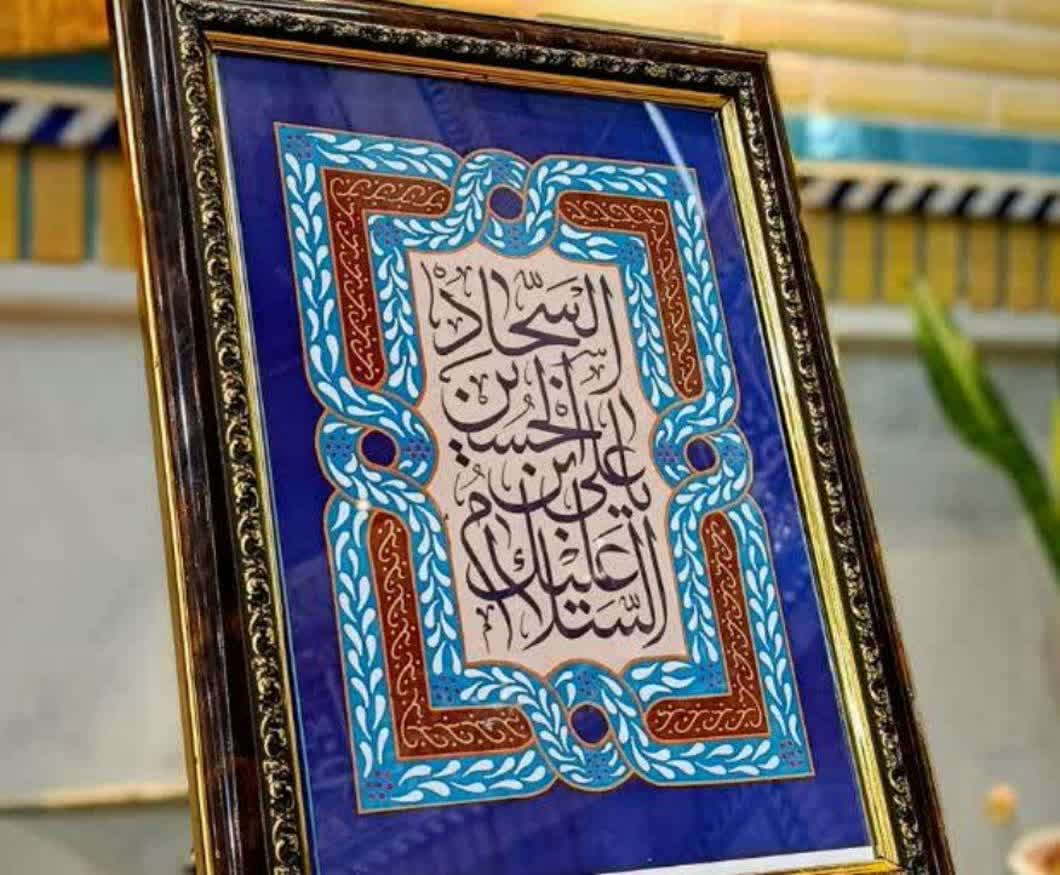 السَّلامُ عَلَیْكَ
یا علی بن
الحسین
السَّجّاد